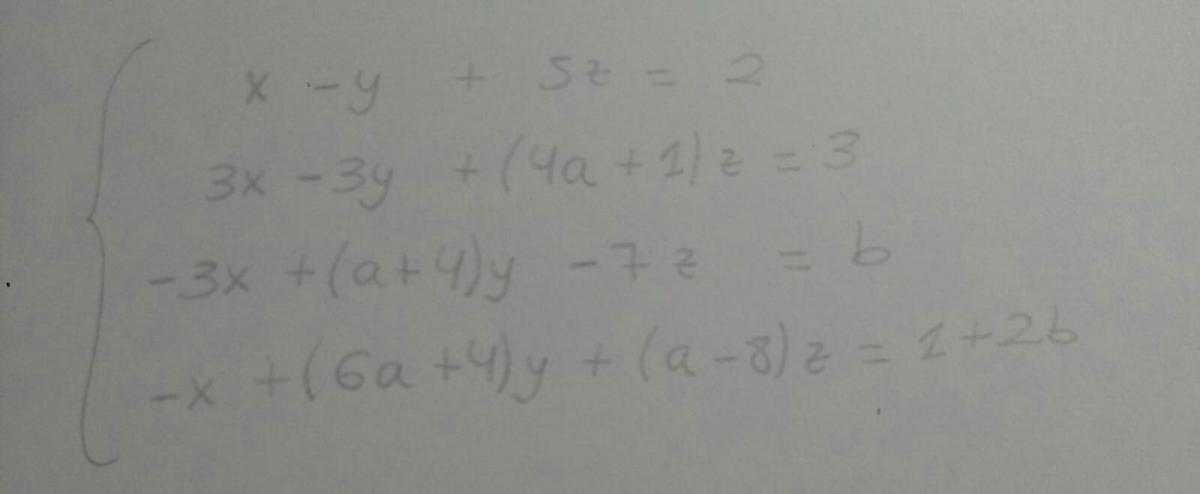 x - y + 5z = 2
3x - 3y + (4a + 1) z = 3
-3x + (a+4)y - 7z = b
-x + (6a + 4)y + (a - 8)z = 1+2b